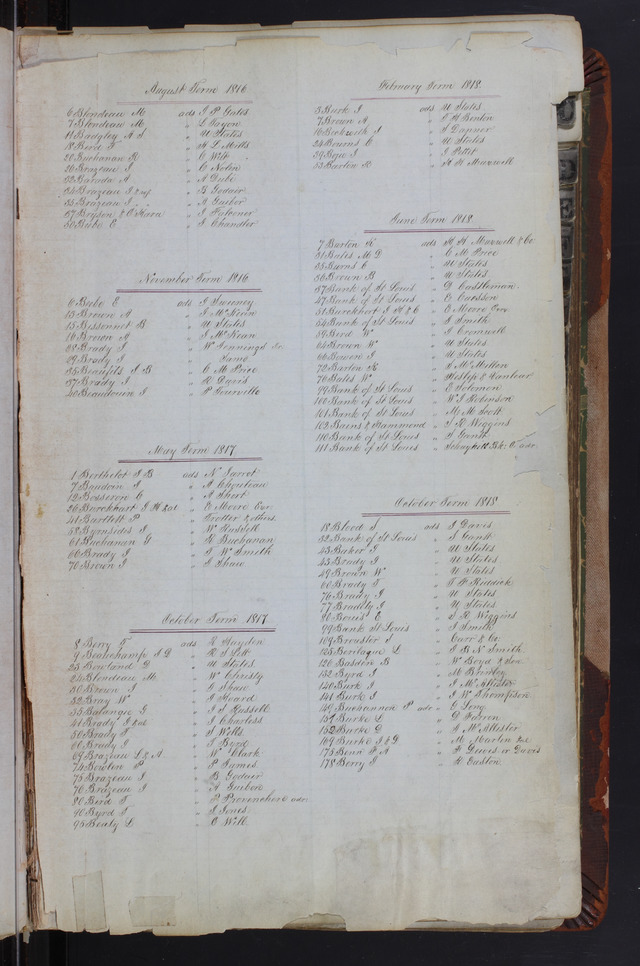 August Term 1816
6 Blondeau M ads J P Gates
7 Blondeau M " L Bayon
11 Badgley A S " U States
18 Bird T " H L Mills
20 Buchanan R " C Wilt
26 Brazeau J " C Nolin
32 Barada A " A Dubi
34 Brazeau J & wf " B Godair
35 Brazeau J " A Guibor
37 Bryson & O'Hara " J Falconer
50 Bebo E " J Chandler
November Term 1816
6 Bebo E ads J Sweeney
10 Brown A " J McKean
15 Bissonnet B " U States
16 Brown A " J McKean
28 Brady J " W Jennings
29 Brady J " Same
35 Beaufils J B " C M Price
37 Brady J " R Davis
40 Beaudouin J " P Tourville
May Term 1817
1 Berthelot J B ads N Jarrot
7 Baudoin J " A Chouteau
12 Bosseron C " A Short
26 Burckhart J H & al " E Moore Exr
41 Bartlett P " Trotter & others
58 Byrnside J " W Russell
61 Buchannan G " R Buchanan
66 Brady J " J W Smith
70 Brown J " J Shaw
October Term 1817
8 Berry T ads R Hayden
9 Beauchamp S D " R S Litt
23 Bowland D " U States
24 Blondeau M " W Christy
30 Brown J " G Shaw
32 Bray W " J Heard
35 Balangie G " J J Russell
41 Brady J & al " J Charless
50 Brady T " J Wells
60 Brady J " J Byrd
69 Brazeau L & A " W Clark
74 Bowlen P " P Symes
75 Brazeau J " B Godair
76 Brazeau J " A Guibor
80 Bird T " P Provenchere adr
90 Byrd T " J Jones
95 Beaty L " C Wilt
February Term 1818
5 Burk J ads U States
7 Brown A " T H Benton
16 Beckwith J " J Danner
24 Burns C " U States
39 Bejo J " J Pettit
53 Barton R " H H Maxwell
June Term 1818
7 Barton R ads H H Maxwell & Co
31 Bates M D " C M Price
35 Burns C " U States
36 Brown B " U States
37 Bank of St Louis " D Castleman
47 Bank of St Louis " E Carsson
51 Burckhart J H & C " E Moore Exr
54 Bank of St Louis " J Smith
59 Bird W " J Cromwell
65 Brown W " U States
66 Bowen J " U States
72 Barton R " A McMillen
76 Bates W " Heslep & Vanlear
99 Bank of St Louis " E Solomon
100 Bank of St Louis " W J Robinson
101 Bank of St Louis " M M Scott
102 Burns & Hammond " J R Wiggins
110 Bank of St Louis " J Gantt
111 Bank of St Louis " Schuylkill Bk:
October Term 1818
18 Blood S ads J Davis
32 Bank of St Louis " J Gantt
43 Baker J " U States
45 Brady J " U States
49 Brown W " U States
60 Brady T " T F Riddick
76 Brady J " U States
77 Bradley J " U States
90 Bouis E " J R Wiggins
99 Bank St Louis " J Smith
109 Brewster S " Carr & Co
125 Boilaque L " J B N Smith
126 Basdon B " W Boyd & Son
132 Byrd J " M Brinley
140 Burk J " J McAllister
141 Burk J " J W Thompson
149 Buchannan P adr " C Long
151 Burke L " D Fabien
152 Burke D " J McAllister
169 Burke J & D " M Martin &c
173 Benn P A " F Dewes or Davis
178 Berry J " H Easton